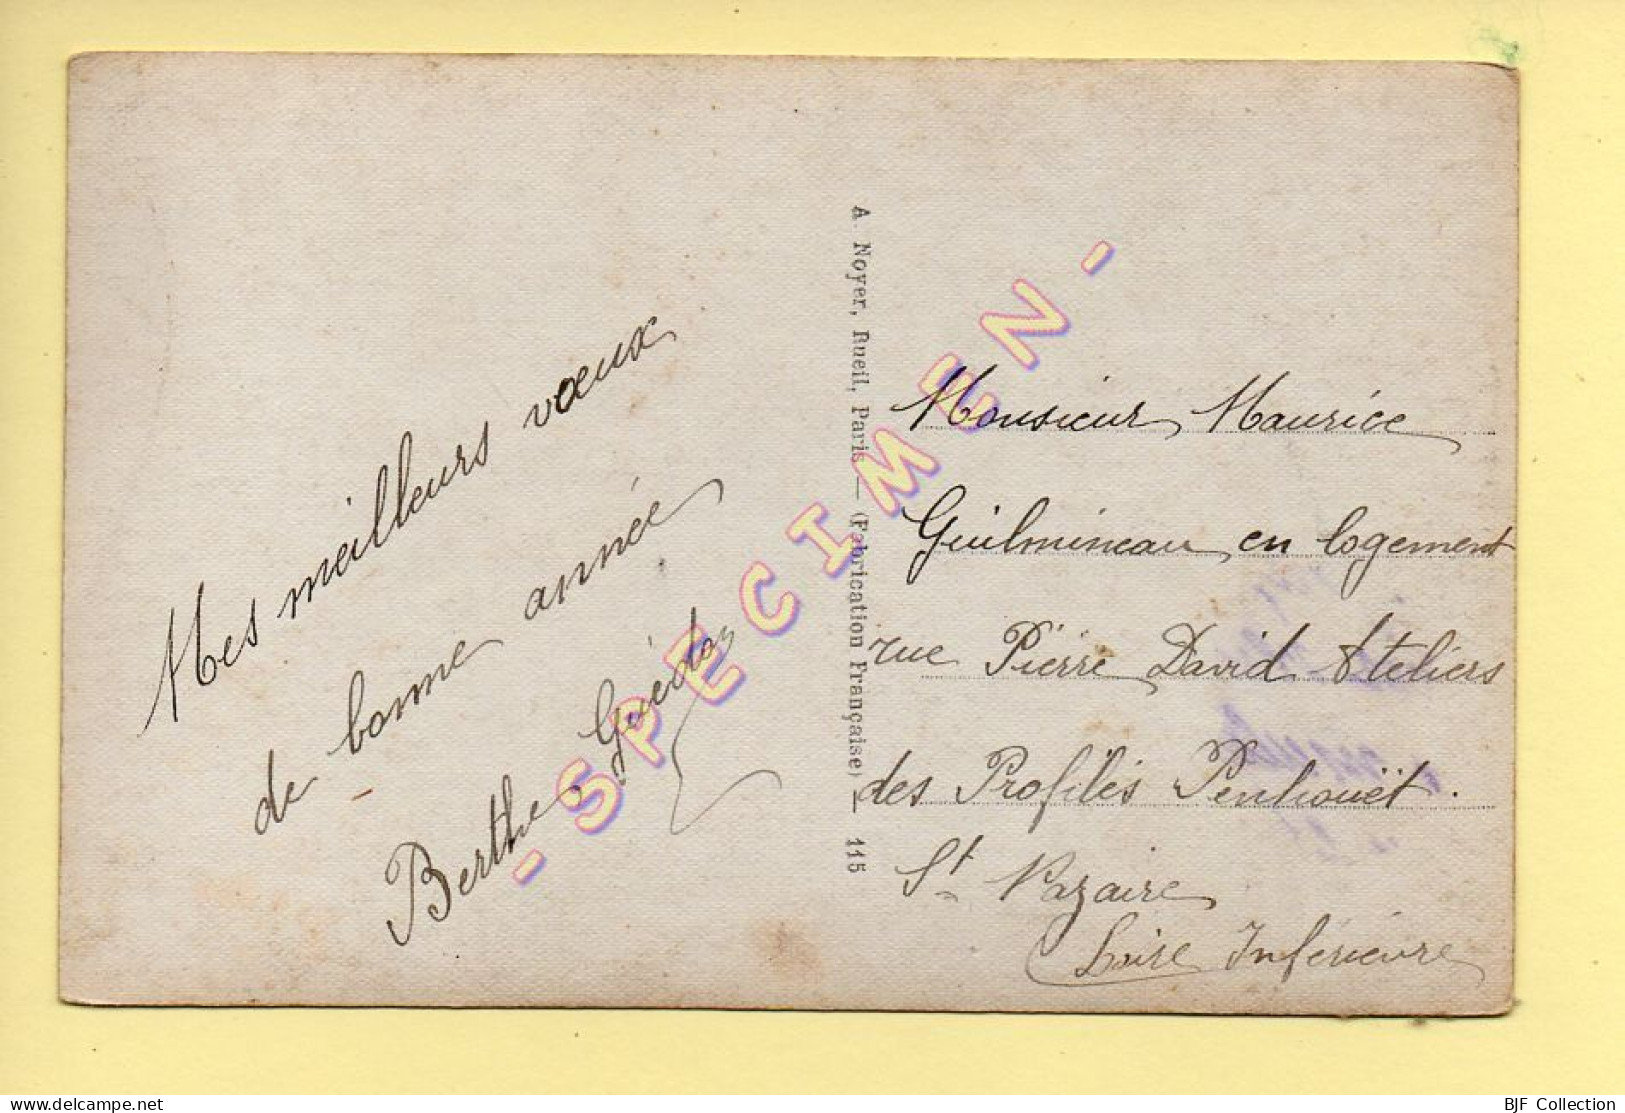 Mes meilleurs vœux
de bonne année
Berthe
A. Noyer, Rueil, Paris — (Fabrication Française) — 115
- SPECIMEN -
Monsieur Maurice
Guilmineau en logement
rue Pierre David Ateliers
des Profilés Penhouët.
St Nazaire
Loire Inférieure
BJF Collection